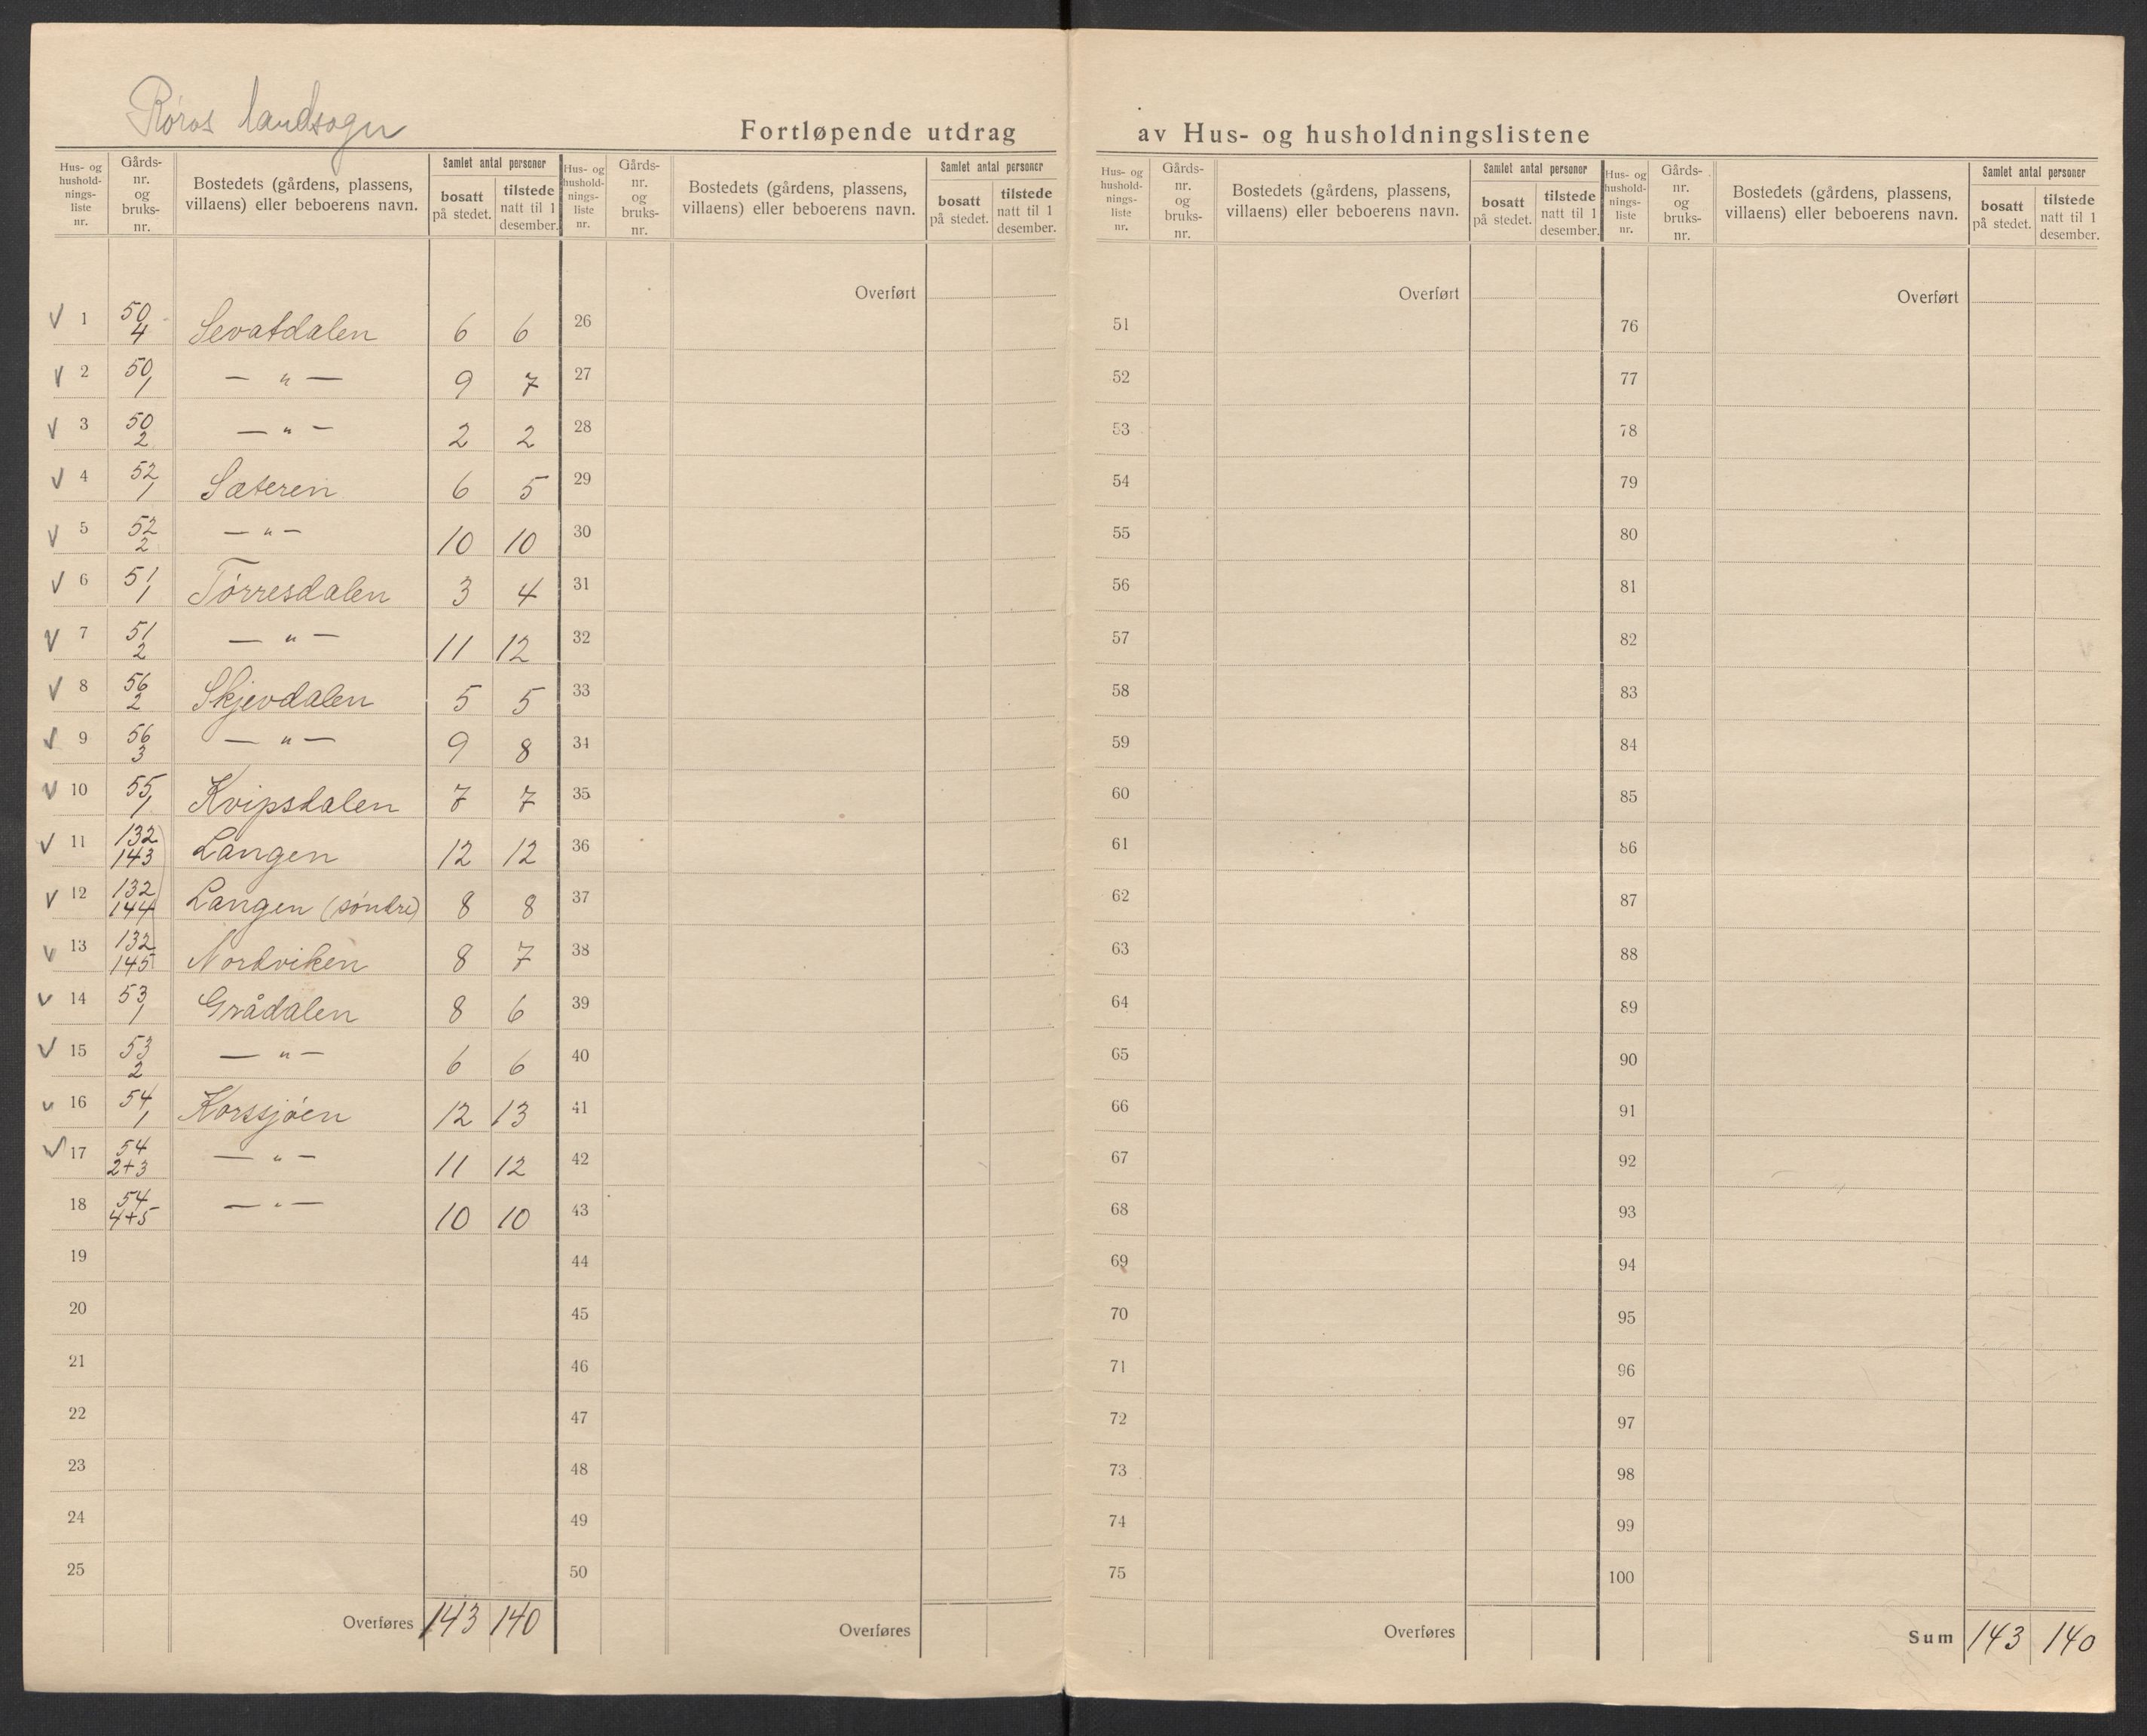 Røros landsogn
Fortløpende utdrag av Hus- og husholdningslistene
Hus- og husholdningsliste nr. | Gårdsnr. og bruksnr. | Bostedets (gårdens, plassens, villaens) eller beboerens navn. | Samlet antal personer | bosatt på stedet. | tilstede natt til 1 desember.
Hus- og husholdningsliste nr. | Gårdsnr. og bruksnr. | Bostedets (gårdens, plassens, villaens) eller beboerens navn. | Samlet antal personer | bosatt på stedet. | tilstede natt til 1 desember.
Hus- og husholdningsliste nr. | Gårdsnr. og bruksnr. | Bostedets (gårdens, plassens, villaens) eller beboerens navn. | Samlet antal personer | bosatt på stedet. | tilstede natt til 1 desember.
Hus- og husholdningsliste nr. | Gårdsnr. og bruksnr. | Bostedets (gårdens, plassens, villaens) eller beboerens navn. | Samlet antal personer | bosatt på stedet. | tilstede natt til 1 desember.
Overført Overført Overført
V 1 50/4 Sevatdalen 6 6 26 51 76
V 2 50/1 — " — 9 7 27 52 77
V 3 50/2 — " — 2 2 28 53 78
V 4 52/1 Sæteren 6 5 29 54 79
V 5 52/2 — " — 10 10 30 55 80
V 6 51/1 Tørresdalen 3 4 31 56 81
V 7 51/2 — " — 11 12 32 57 82
V 8 56/2 Skjevdalen 5 5 33 58 83
V 9 56/3 — " — 9 8 34 59 84
V 10 55/1 Kvipsdalen 7 7 35 60 85
V 11 132/143 Langen 12 12 36 61 86
V 12 132/144 Langen (søndre) 8 8 37 62 87
V 13 132/145 Nordviken 8 7 38 63 88
V 14 53/1 Grådalen 8 6 39 64 89
V 15 53/2 — " — 6 6 40 65 90
V 16 54/1 Korssjøen 12 13 41 66 91
V 17 54/2+3 — " — 11 12 42 67 92
18 54/4+5 — " — 10 10 43 68 93
19 44 69 94
20 45 70 95
21 46 71 96
22 47 72 97
23 48 73 98
24 49 74 99
25 50 75 100
Overføres 143 140 Overføres Overføres Sum 143 140